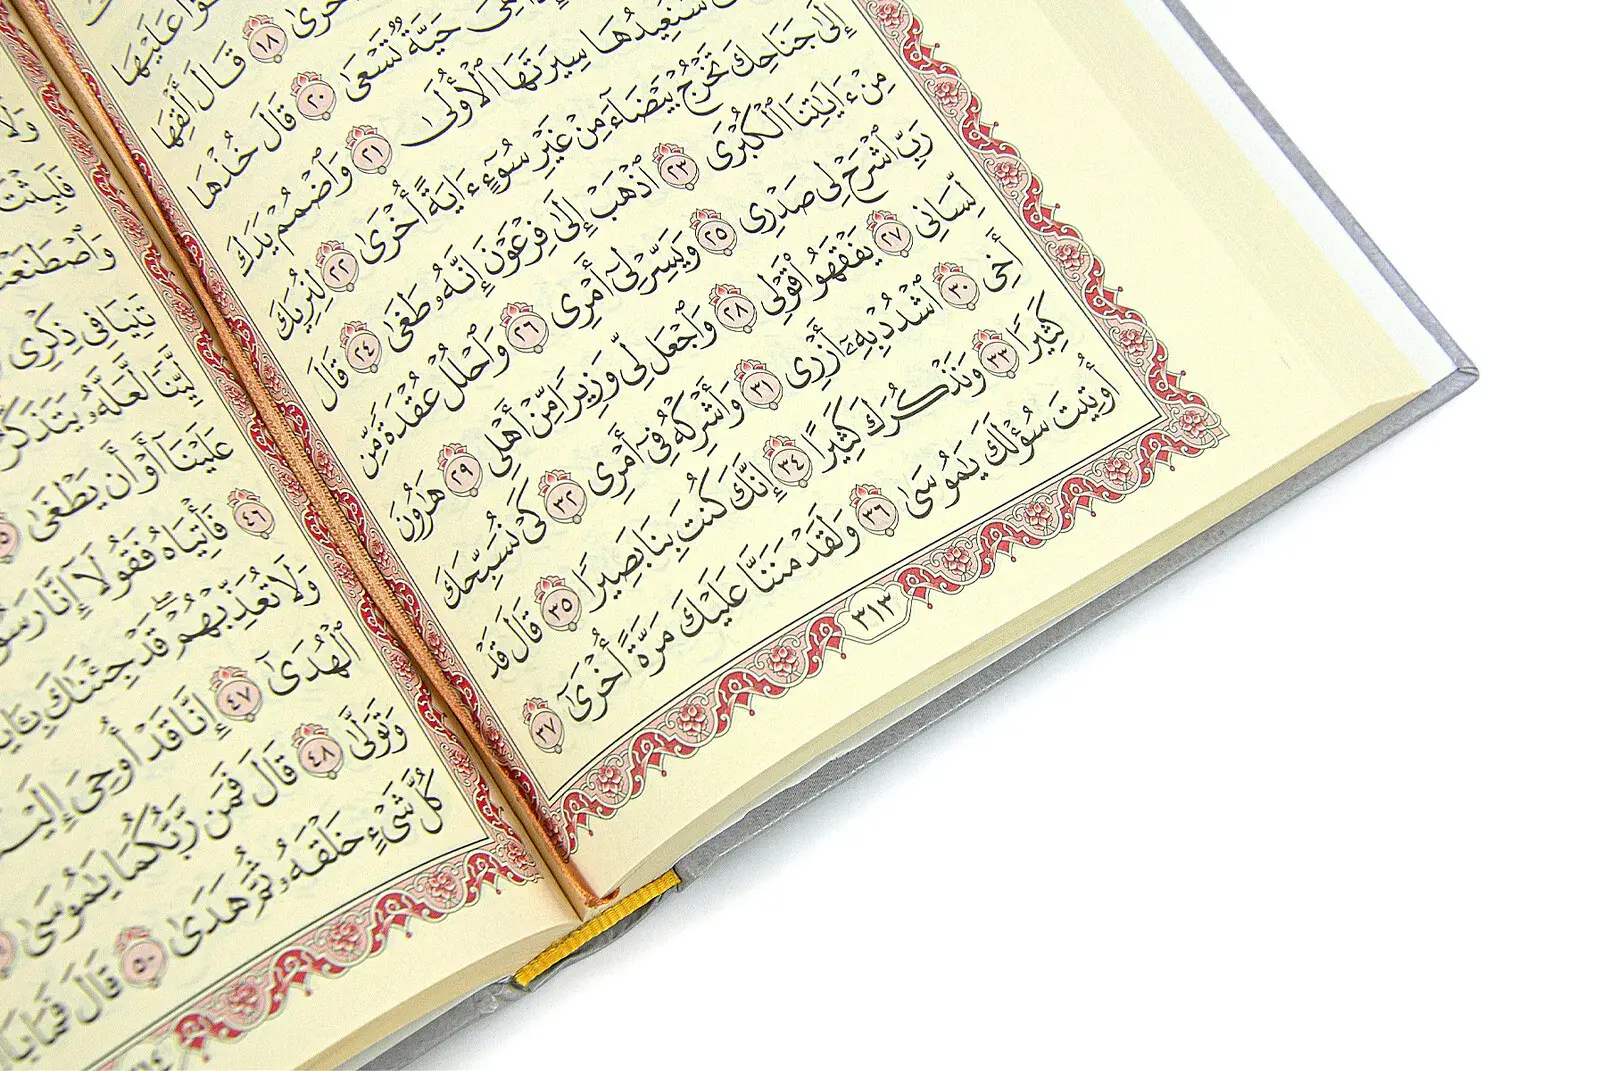 عَلَيْهَا
أُخْرَىٰ ١٨ قَالَ أَلْقِهَا
حَيَّةٌ تَسْعَىٰ ٢٠ قَالَ خُذْهَا
سَنُعِيدُهَا سِيرَتَهَا ٱلْأُولَىٰ ٢١ وَٱضْمُمْ يَدَكَ
إِلَىٰ جَنَاحِكَ تَخْرُجْ بَيْضَآءَ مِنْ غَيْرِ سُوٓءٍ ءَايَةً أُخْرَىٰ ٢٢ لِنُرِيَكَ
مِنْ ءَايَٰتِنَا ٱلْكُبْرَى ٢٣ ٱذْهَبْ إِلَىٰ فِرْعَوْنَ إِنَّهُۥ طَغَىٰ ٢٤ قَالَ
رَبِّ ٱشْرَحْ لِى صَدْرِى ٢٥ وَيَسِّرْ لِىٓ أَمْرِى ٢٦ وَٱحْلُلْ عُقْدَةً مِّن
لِّسَانِى ٢٧ يَفْقَهُوا۟ قَوْلِى ٢٨ وَٱجْعَل لِّى وَزِيرًا مِّنْ أَهْلِى ٢٩ هَٰرُونَ
أَخِى ٣٠ ٱشْدُدْ بِهِۦٓ أَزْرِى ٣١ وَأَشْرِكْهُ فِىٓ أَمْرِى ٣٢ كَىْ نُسَبِّحَكَ
كَثِيرًا ٣٣ وَنَذْكُرَكَ كَثِيرًا ٣٤ إِنَّكَ كُنتَ بِنَا بَصِيرًا ٣٥ قَالَ قَدْ
أُوتِيتَ سُؤْلَكَ يَٰمُوسَىٰ ٣٦ وَلَقَدْ مَنَنَّا عَلَيْكَ مَرَّةً أُخْرَىٰٓ ٣٧
٣١٣
فَلَبِثْتَ
تَنِيَا فِى ذِكْرِى
لَّيِّنًا لَّعَلَّهُۥ يَتَذَكَّرُ
عَلَيْنَآ أَوْ أَن يَطْغَىٰ
٤٦ فَأْتِيَاهُ فَقُولَآ إِنَّا
وَلَا تُعَذِّبْهُمْ قَدْ جِئْنَٰكَ
ٱلْهُدَىٰٓ ٤٧ إِنَّا قَدْ أُوحِىَ
وَتَوَلَّىٰ ٤٨ قَالَ فَمَن رَّبُّكُمَا يَٰمُوسَىٰ
كُلَّ شَىْءٍ خَلْقَهُۥ ثُمَّ هَدَىٰ ٥٠ قَالَ فَمَا